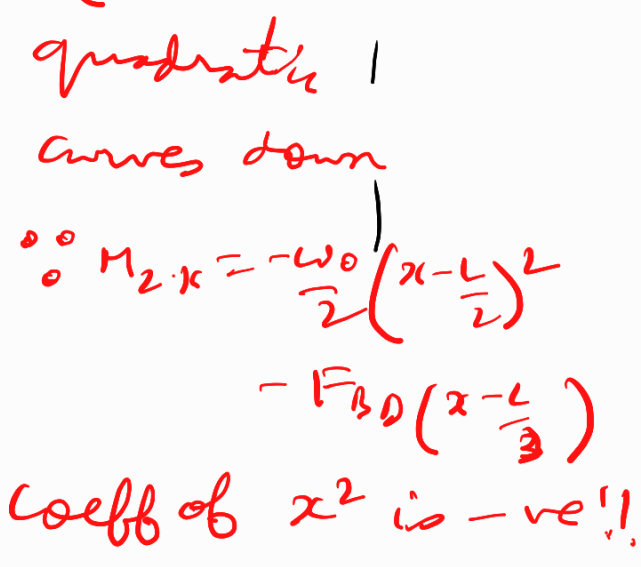 quadratic
curves down
∵ M₂.x = -ω₀/2 (x - L/2)²
- F_BD (x - L/3)
coeff of x² is -ve!!